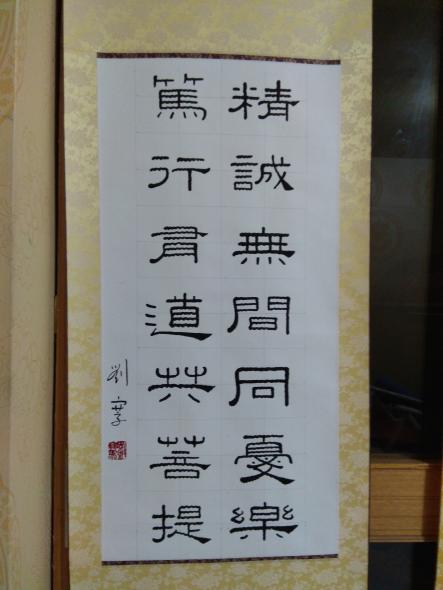 精誠無間同憂樂
篤行有道共菩提
劉